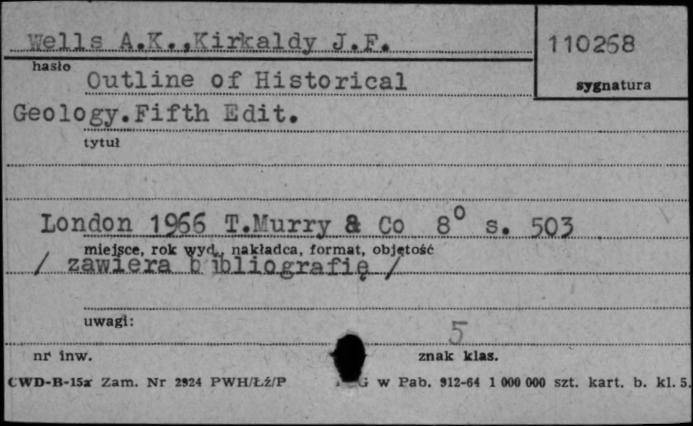 Wells A.K.,Kirkaldy J.F.
110268
hasło
sygnatura
Outline of Historical
Geology.Fifth Edit.
tytuł
London 1966 T.Murry & Co 8° s. 503
miejsce, rok wyd., nakładca, format, objętość
/ zawiera bibliografię /
uwagi:
5
nr inw.
znak klas.
CWD-B-15a Zam. Nr 2924 PWH/Łź/P G w Pab. 912-64 1 000 000 szt. kart. b. kl. 5.